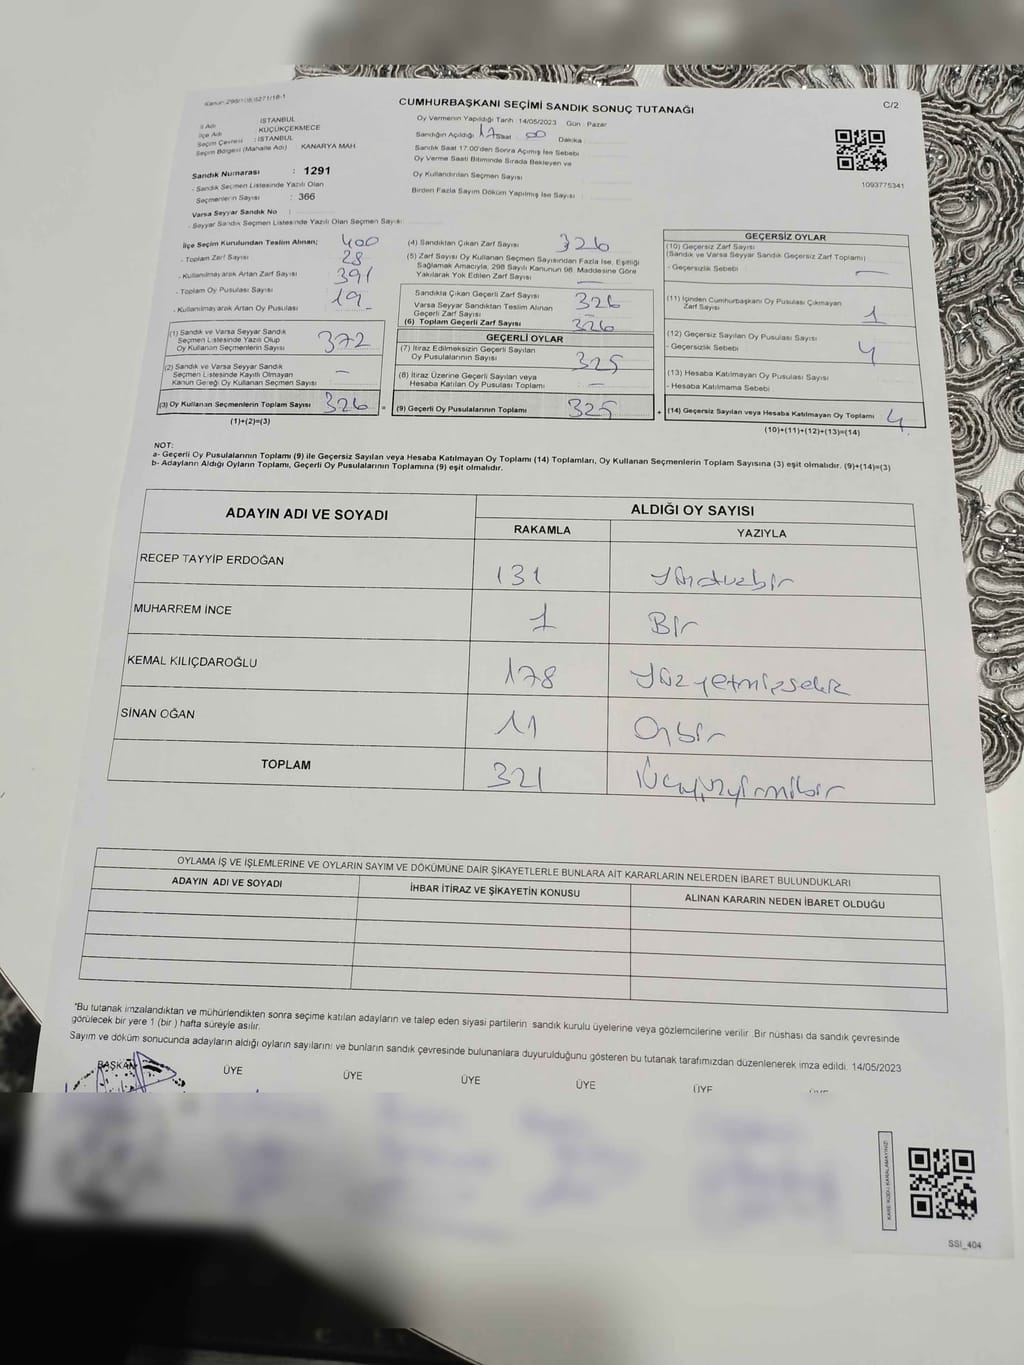 Kanun:298/108;6271/18-1
CUMHURBAŞKANI SEÇİMİ SANDIK SONUÇ TUTANAĞI
C/2
İl Adı : İSTANBUL
İlçe Adı : KÜÇÜKÇEKMECE
Seçim Çevresi : İSTANBUL
Seçim Bölgesi (Mahalle Adı) : KANARYA MAH.
Sandık Numarası : 1291
- Sandık Seçmen Listesinde Yazılı Olan
Seçmenlerin Sayısı : 366
Varsa Seyyar Sandık No :
- Seyyar Sandık Seçmen Listesinde Yazılı Olan Seçmen Sayısı:
Oy Vermenin Yapıldığı Tarih :14/05/2023 Gün : Pazar
Sandığın Açıldığı 17 Saat : 00 Dakika :
Sandık Saat 17:00'den Sonra Açımış İse Sebebi
Oy Verme Saati Bitiminde Sırada Bekleyen ve
Oy Kullandırılan Seçmen Sayısı
Birden Fazla Sayım Döküm Yapılmış İse Sayısı :
1093775341
İlçe Seçim Kurulundan Teslim Alınan;
- Toplam Zarf Sayısı : 400
- Kullanılmayarak Artan Zarf Sayısı : 28
- Toplam Oy Pusulası : 391
- Kullanılmayarak Artan Oy Pusulası : 19
(1) Sandık ve Varsa Seyyar Sandık
Seçmen Listesinde Yazılı Olup
Oy Kullanan Seçmenlerin Sayısı : 372
(2) Sandık ve Varsa Seyyar Sandık
Seçmen Listesinde Kayıtlı Olmayan
Kanun Gereği Oy Kullanan Seçmen Sayısı : —
(3) Oy Kullanan Seçmenlerin Toplam Sayısı : 326 =
(1)+(2)=(3)
(4) Sandıktan Çıkan Zarf Sayısı : 326
(5) Zarf Sayısı Oy Kullanan Seçmen Sayısından Fazla İse, Eşitliği
Sağlamak Amacıyla; 298 Sayılı Kanunun 98. Maddesine Göre
Yakılarak Yok Edilen Zarf Sayısı : —
Sandıkta Çıkan Geçerli Zarf Sayısı : 326
Varsa Seyyar Sandıktan Teslim Alınan
Geçerli Zarf Sayısı : —
(6) Toplam Geçerli Zarf Sayısı : 326
GEÇERLİ OYLAR
(7) İtiraz Edilmeksizin Geçerli Sayılan
Oy Pusulalarının Sayısı : 325
(8) İtiraz Üzerine Geçerli Sayılan veya
Hesaba Katılan Oy Pusulası Toplamı : —
(9) Geçerli Oy Pusulalarının Toplamı : 325 +
GEÇERSİZ OYLAR
(10) Geçersiz Zarf Sayısı
(Sandık ve Varsa Seyyar Sandık Geçersiz Zarf Toplamı) : —
- Geçersizlik Sebebi :
(11) İçinden Cumhurbaşkanı Oy Pusulası Çıkmayan
Zarf Sayısı : 1
(12) Geçersiz Sayılan Oy Pusulası Sayısı : 4
- Geçersizlik Sebebi :
(13) Hesaba Katılmayan Oy Pusulası Sayısı :
- Hesaba Katılmama Sebebi :
(14) Geçersiz Sayılan veya Hesaba Katılmayan Oy Toplamı : 4
(10)+(11)+(12)+(13)=(14)
NOT:
a- Geçerli Oy Pusulalarının Toplamı (9) ile Geçersiz Sayılan veya Hesaba Katılmayan Oy Toplamı (14) Toplamları, Oy Kullanan Seçmenlerin Toplam Sayısına (3) eşit olmalıdır. (9)+(14)=(3)
b- Adayların Aldığı Oyların Toplamı, Geçerli Oy Pusulalarının Toplamına (9) eşit olmalıdır.
ADAYIN ADI VE SOYADI
ALDIĞI OY SAYISI
RAKAMLA YAZIYLA
RECEP TAYYİP ERDOĞAN 131
MUHARREM İNCE 1 Bir
KEMAL KILIÇDAROĞLU 178 Yüzyetmişsekiz
SİNAN OĞAN 11 Onbir
TOPLAM 321 Üçyüzyirmibir
OYLAMA İŞ VE İŞLEMLERİNE VE OYLARIN SAYIM VE DÖKÜMÜNE DAİR ŞİKAYETLERLE BUNLARA AİT KARARLARIN NELERDEN İBARET BULUNDUKLARI
ADAYIN ADI VE SOYADI İHBAR İTİRAZ VE ŞİKAYETİN KONUSU ALINAN KARARIN NEDEN İBARET OLDUĞU
*Bu tutanak imzalandıktan ve mühürlendikten sonra seçime katılan adayların ve talep eden siyasi partilerin sandık kurulu üyelerine veya gözlemcilerine verilir. Bir nüshası da sandık çevresinde
görülecek bir yere 1 (bir ) hafta süreyle asılır.
Sayım ve döküm sonucunda adayların aldığı oyların sayılarını ve bunların sandık çevresinde bulunanlara duyurulduğunu gösteren bu tutanak tarafımızdan düzenlenerek imza edildi. 14/05/2023
BAŞKAN ÜYE ÜYE ÜYE ÜYE ÜYE
KARE KODU KARALAMAYINIZ!
SSI_404